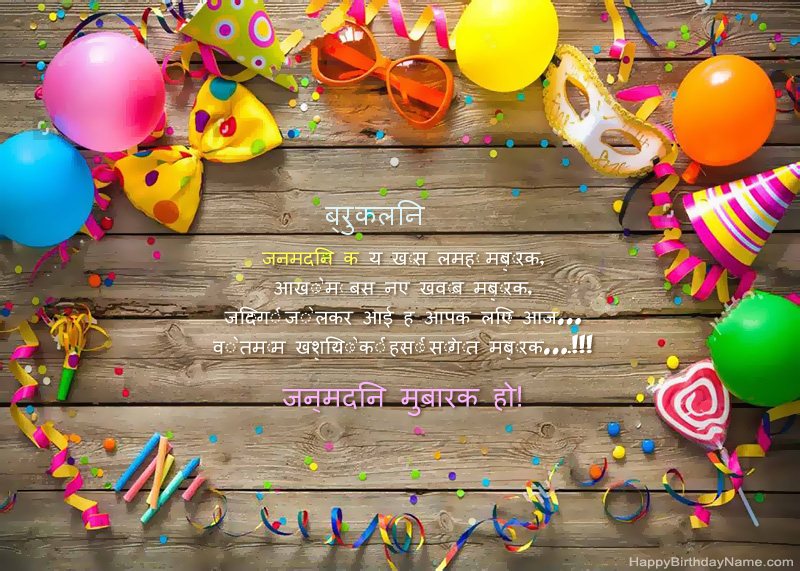 ब्रुकलिन
जनमदिन क य खास लमहा मबारक,
आखों म बस नए खवाब मबारक,
जिंदगी जो लेकर आई ह आपक लिए आज...
वो तमाम खशियों की हसीं सौगात मबारक....!!!
जन्मदिन मुबारक हो!
HappyBirthdayName.com